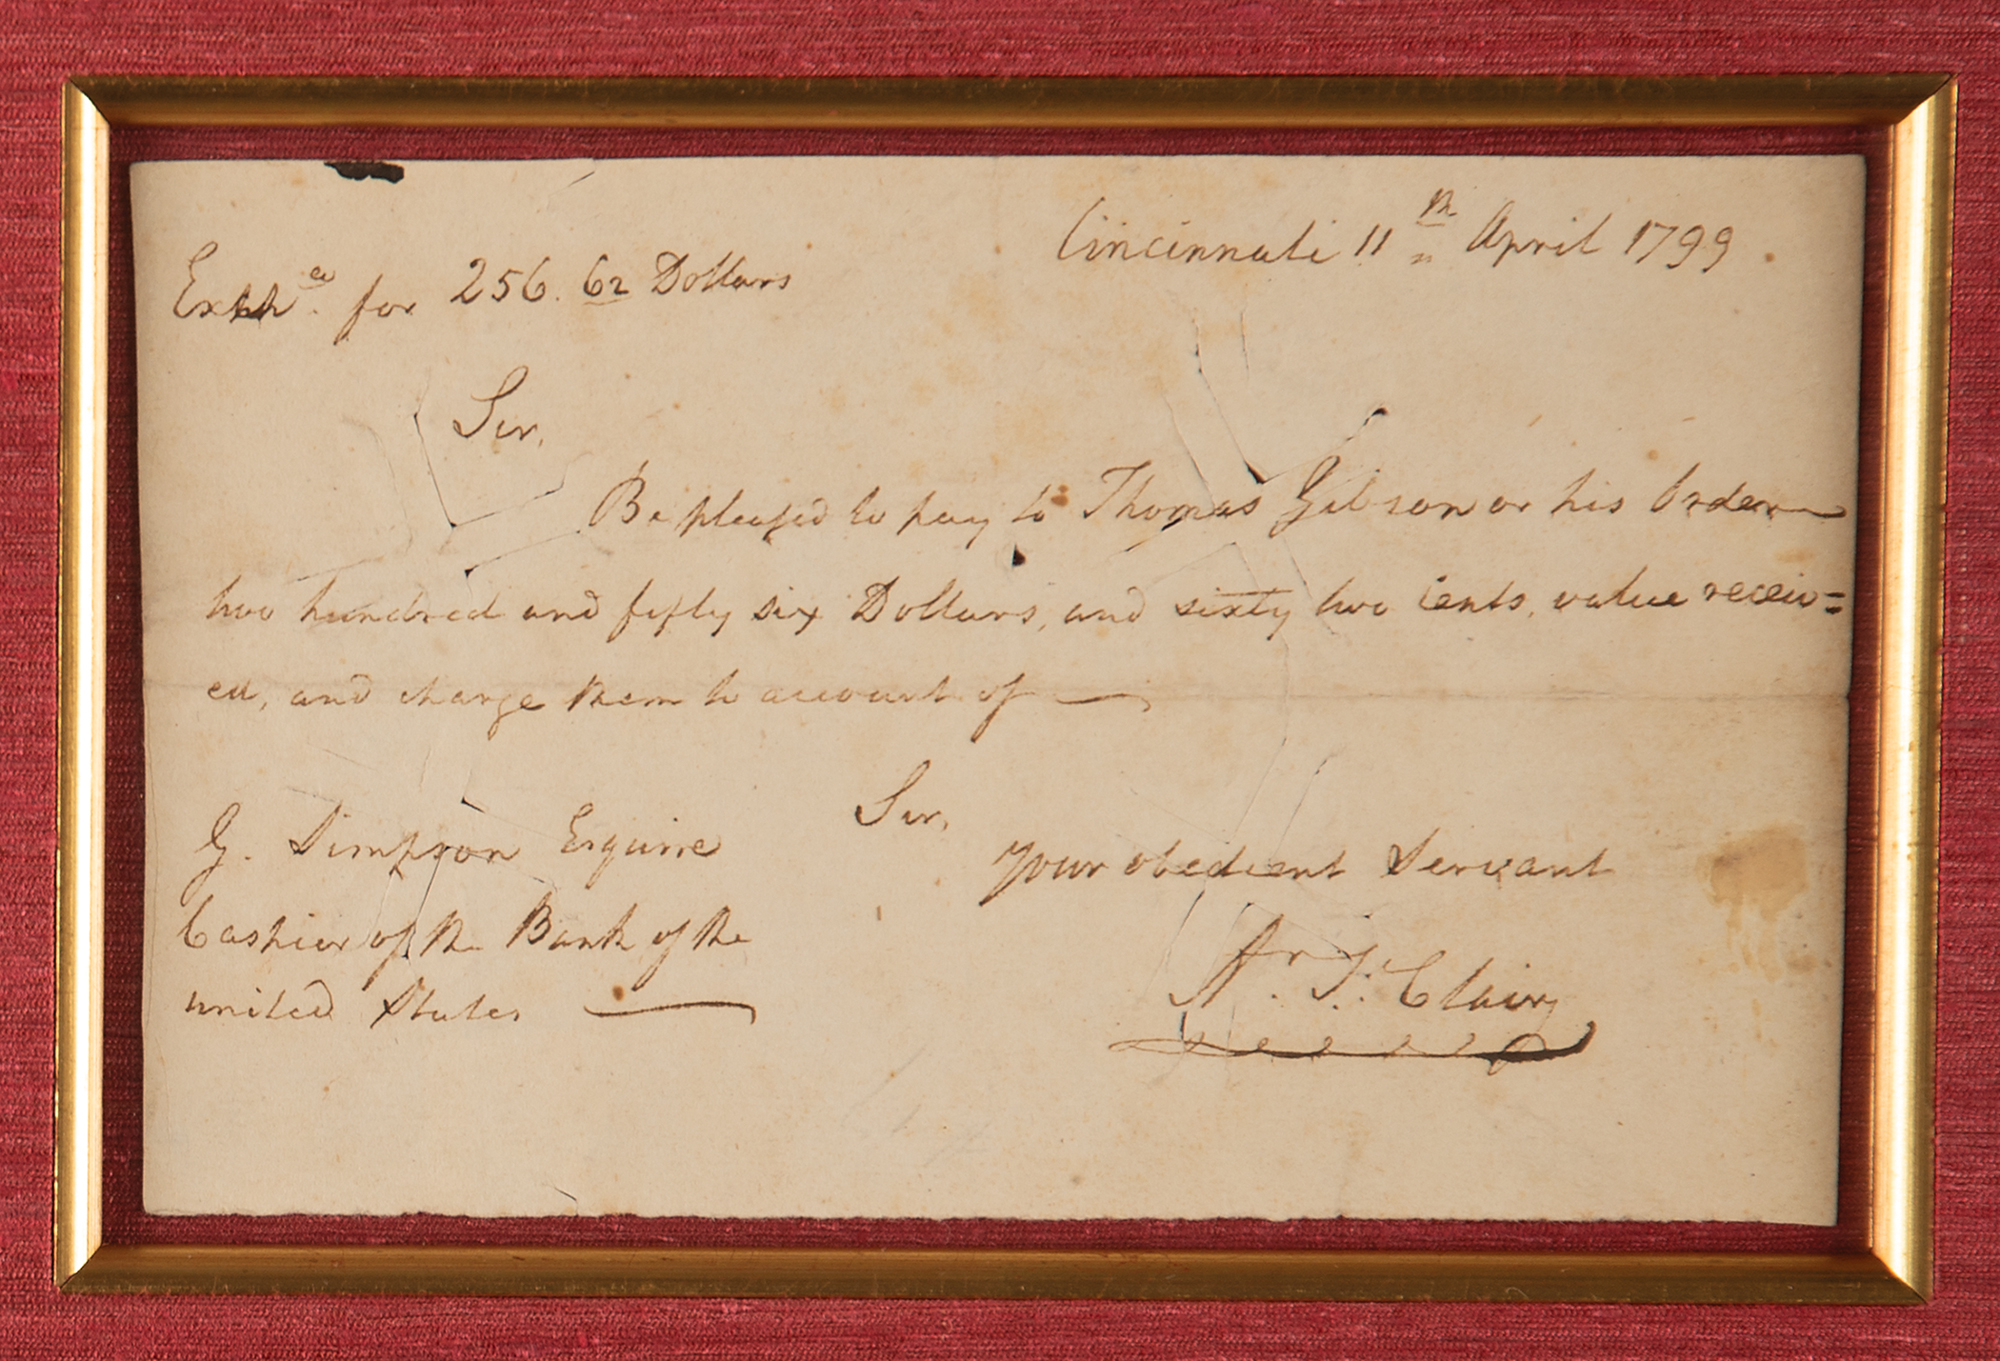 Cincinnati 11th April 1799.
Exche. for 256.62 Dollars
Sir,
Be pleased to pay to Thomas Gibson or his Order
two hundred and fifty six Dollars, and sixty two Cents, value receiv=
ed, and charge them to account of
Sir,
G. Simpson Esquire
your obedient Servant
Cashier of the Bank of the
united States
Ar. St. Clair